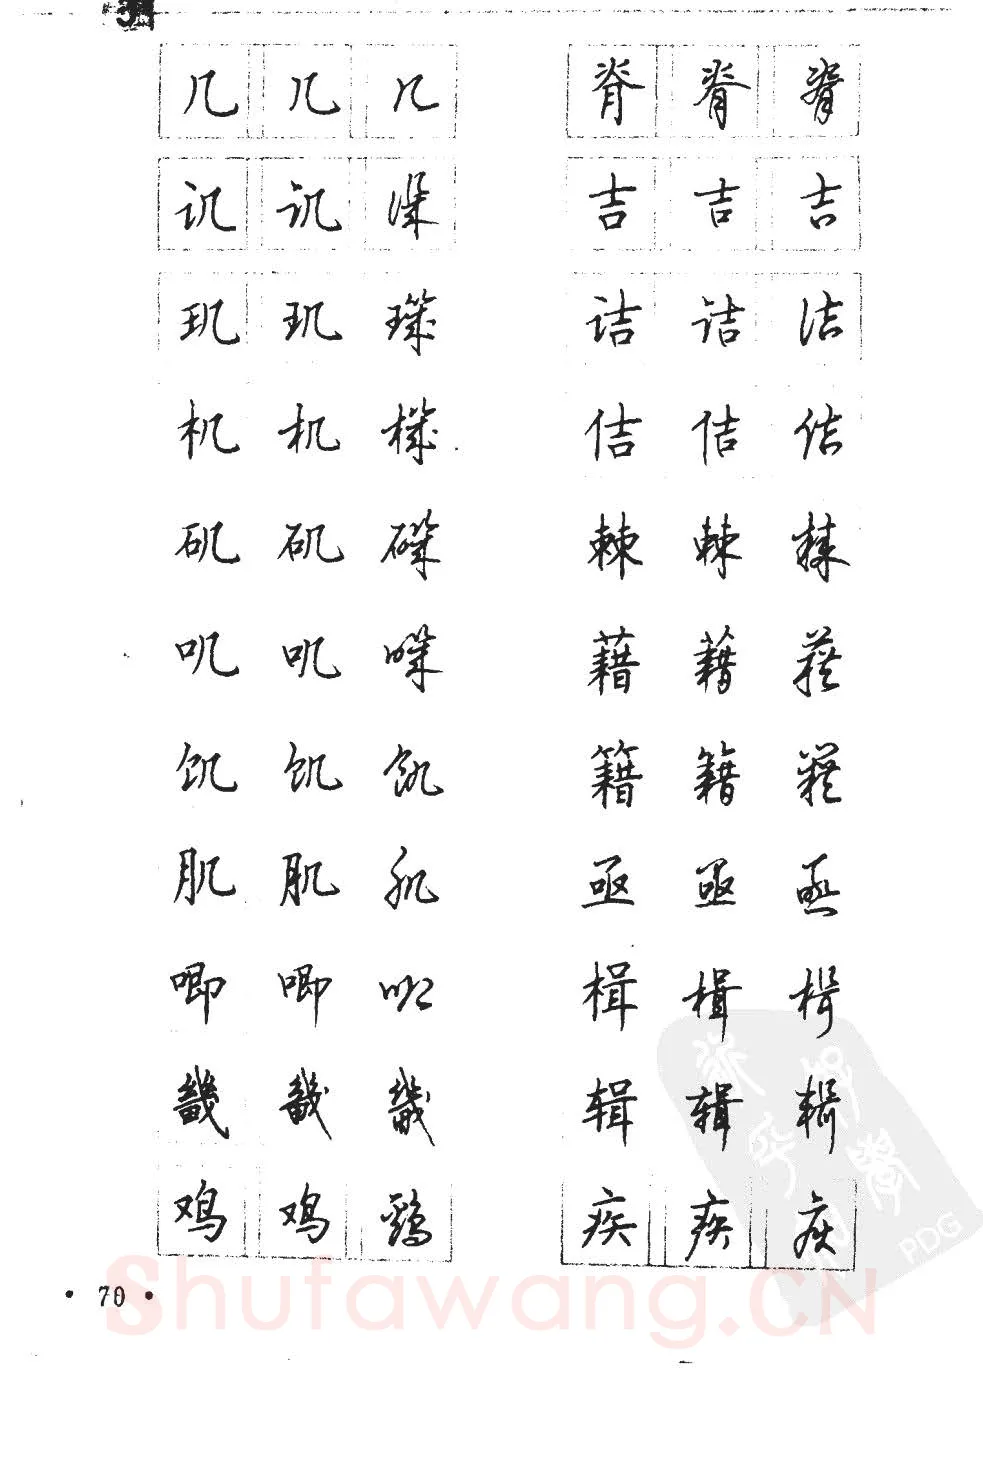 几 几 几
讥 讥 譏
玑 玑 璣
机 机 機
矶 矶 磯
叽 叽 嘰
饥 饥 飢
肌 肌 肌
唧 唧 唧
畿 畿 畿
鸡 鸡 鷄
脊 脊 脊
吉 吉 吉
诘 诘 诘
佶 佶 佶
棘 棘 棘
藉 藉 藉
籍 籍 籍
亟 亟 亟
楫 楫 楫
辑 辑 輯
疾 疾 疾
• 70 •
Shufawang.CN
PDG